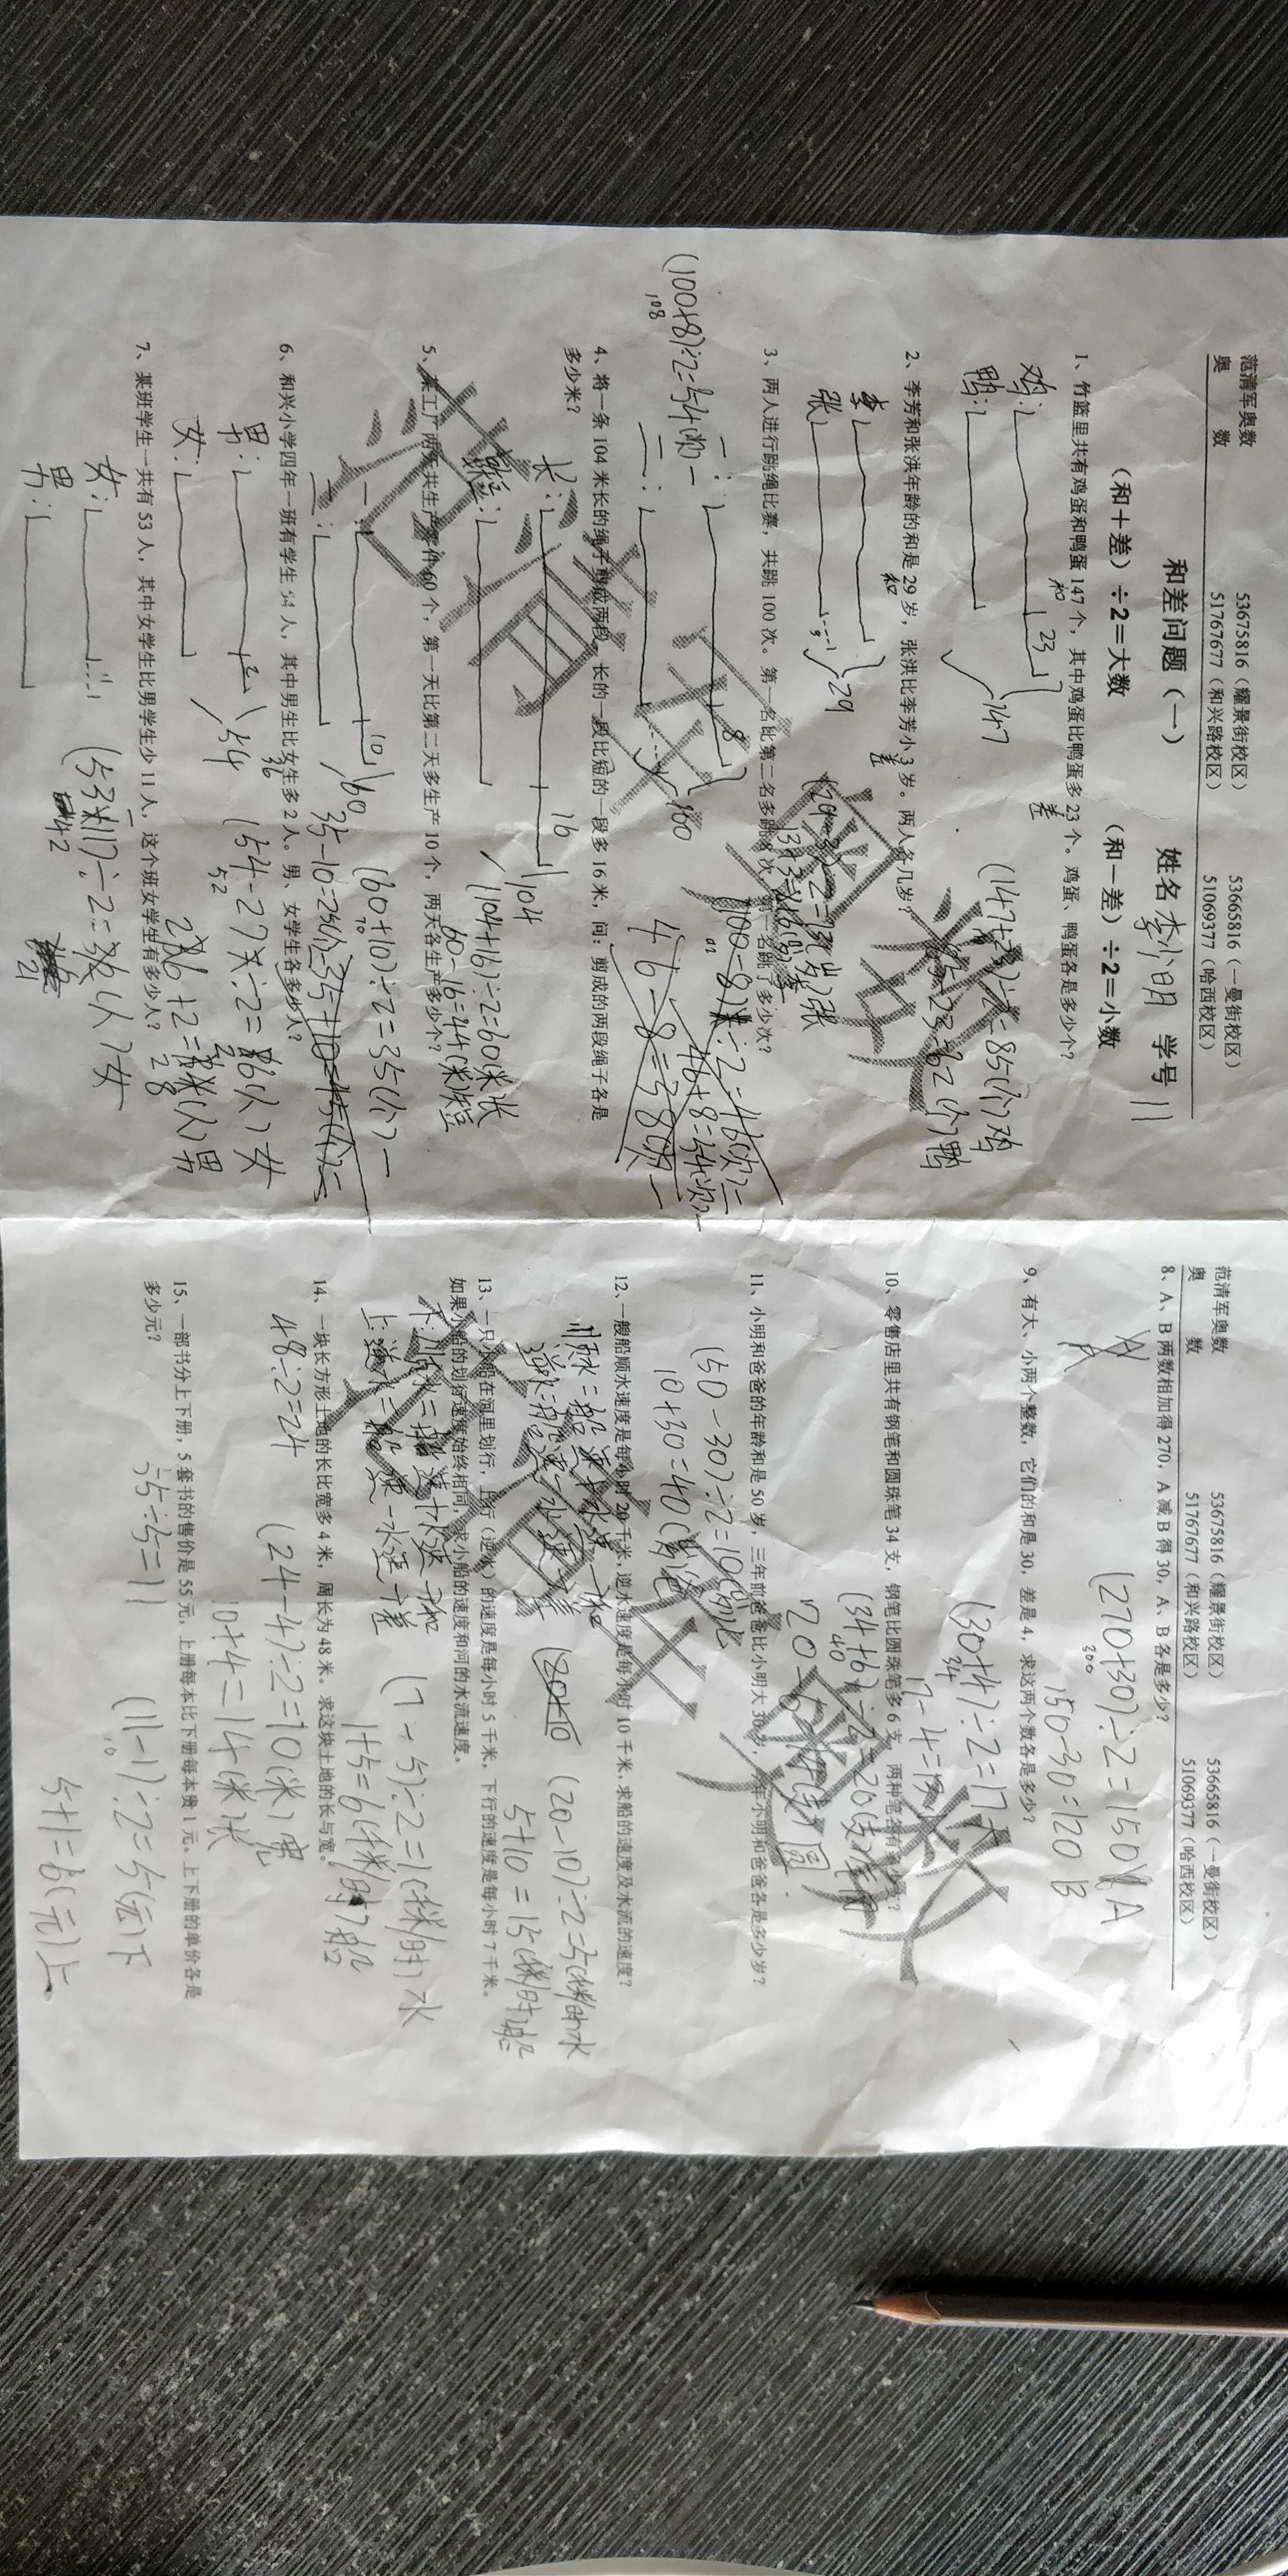 范清军奥数 53675816（耀景街校区） 53665816（一曼街校区）
奥 数 51767677（和兴路校区） 51069377（哈西校区）
和差问题（一） 姓名 李小明 学号 11
（和＋差）÷2＝大数 （和－差）÷2＝小数
1、竹篮里共有鸡蛋和鸭蛋 147 个，其中鸡蛋比鸭蛋多 23 个。鸡蛋、鸭蛋各是多少个？
和 差
鸡： 23
147
鸭：
=85(个)鸡
=62(个)鸭
2、李芳和张洪年龄的和是 29 岁，张洪比李芳小 3 岁。两人各几岁？
和 差
李：
29
张：
3、两人进行跳绳比赛，共跳 100 次。第一名比第二名多跳 8 次，第一名跳了多少次？
(100-8)÷2=46(次)二
46+8=54(次)
一： 8
100
(100+8)÷2=54(次)一
108
二：
46-8=38(次)一
4、将一条 104 米长的绳子剪成两段，长的一段比短的一段多 16 米，问：剪成的两段绳子各是
多少米？
长： 16
104
(104+16)÷2=60(米)长
60-16=44(米)短
5、某工厂两天共生产零件 60 个，第一天比第二天多生产 10 个，两天各生产多少个？
一： 10
60
(60+10)÷2=35(个)一
70
二：
35-10=25(个)二
6、和兴小学四年一班有学生 54 人，其中男生比女生多 2 人。男、女学生各多少人？
男： 2
54
(54-2)÷2=26(人)女
52
女：
26+2=28(人)男
7、某班学生一共有 53 人，其中女学生比男学生少 11 人，这个班女学生有多少人？
女： 11
男：
42
21
范清军奥数 53675816（耀景街校区） 53665816（一曼街校区）
奥 数 51767677（和兴路校区） 51069377（哈西校区）
8、A、B 两数相加得 270，A 减 B 得 30，A、B 各是多少？
(270+30)÷2=150 A
300
150-30=120 B
9、有大、小两个整数，它们的和是 30，差是 4，求这两个数各是多少？
(30+4)÷2=17
34
17-4=13
10、零售店里共有钢笔和圆珠笔 34 支，钢笔比圆珠笔多 6 支，两种笔各有多少支？
(34+6)÷2=20(支)
40
11、小明和爸爸的年龄和是 50 岁，三年前爸爸比小明大 30 岁，今年小明和爸爸各是多少岁？
(50-30)÷2=10
10+30=40(岁)爸
12、一艘船顺水速度是每小时 20 千米，逆水速度是每小时 10 千米，求船的速度及水流的速度？
顺水=船速+水速→和
逆水=船速-水速→差
(20-10)÷2=5(千米/时)水
5+10=15(千米/时)船
13、一只小船在河里划行，上行（逆水）的速度是每小时 5 千米，下行的速度是每小时 7 千米。
如果小船的划行速度始终相同，求小船的速度和河的水流速度。
下：顺水=船速+水速→和
上：逆水=船速-水速→差
(7-5)÷2=1(千米/时)水
1+5=6(千米/时)船
14、一块长方形土地的长比宽多 4 米，周长为 48 米。求这块土地的长与宽。
48÷2=24
(24-4)÷2=10(米)宽
10+4=14(米)长
15、一部书分上下册，5 套书的售价是 55 元，上册每本比下册每本贵 1 元。上下册的单价各是
多少元？
55÷5=11
(11-1)÷2=5(元)下
10
5+1=6(元)上